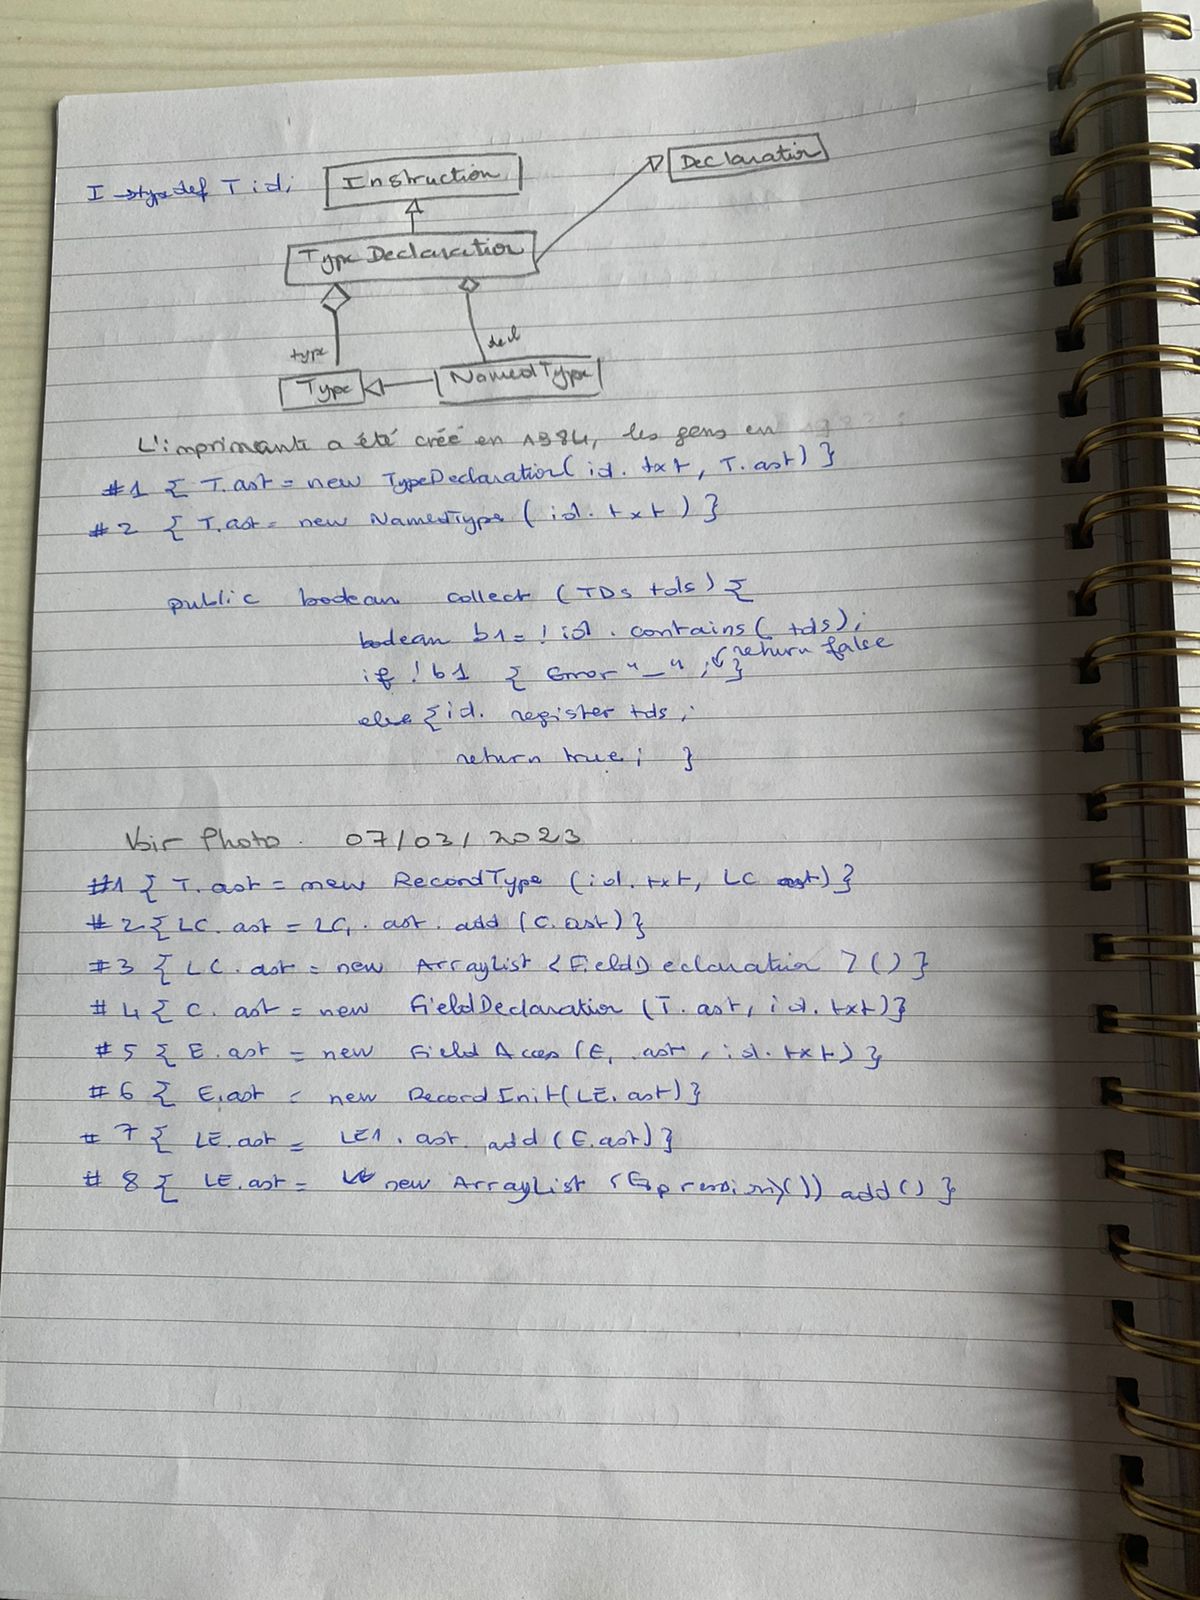 I → typedef T id;
Instruction
Declaration
TypeDeclaration
type
decl
Type
NamedType
L'imprimante a été créé en 1984, les gens en
#1 { T.ast = new TypeDeclaration( id.txt, T.ast) }
#2 { T.ast = new NamedType ( id.txt ) }
public boolean collect (TDS tds) {
boolean b1 = ! id . contains( tds);
return false
if ! b1 { Error "_" ; }
else { id. register tds ;
return true ; }
Voir Photo. 07/03/2023
#1 { T.ast = new RecordType (id.txt, LC ast) }
#2 { LC.ast = LC1 . ast . add (C.ast) }
#3 { LC.ast = new ArrayList <FieldDeclaration > () }
#4 { C. ast = new FieldDeclaration (T.ast, id.txt) }
#5 { E.ast = new Field Acces (E1 .ast , id.txt) }
#6 { E.ast = new RecordInit(LE.ast) }
#7 { LE.ast = LE1 . ast . add (E.ast) }
#8 { LE.ast = new ArrayList <Expression>()) add() }